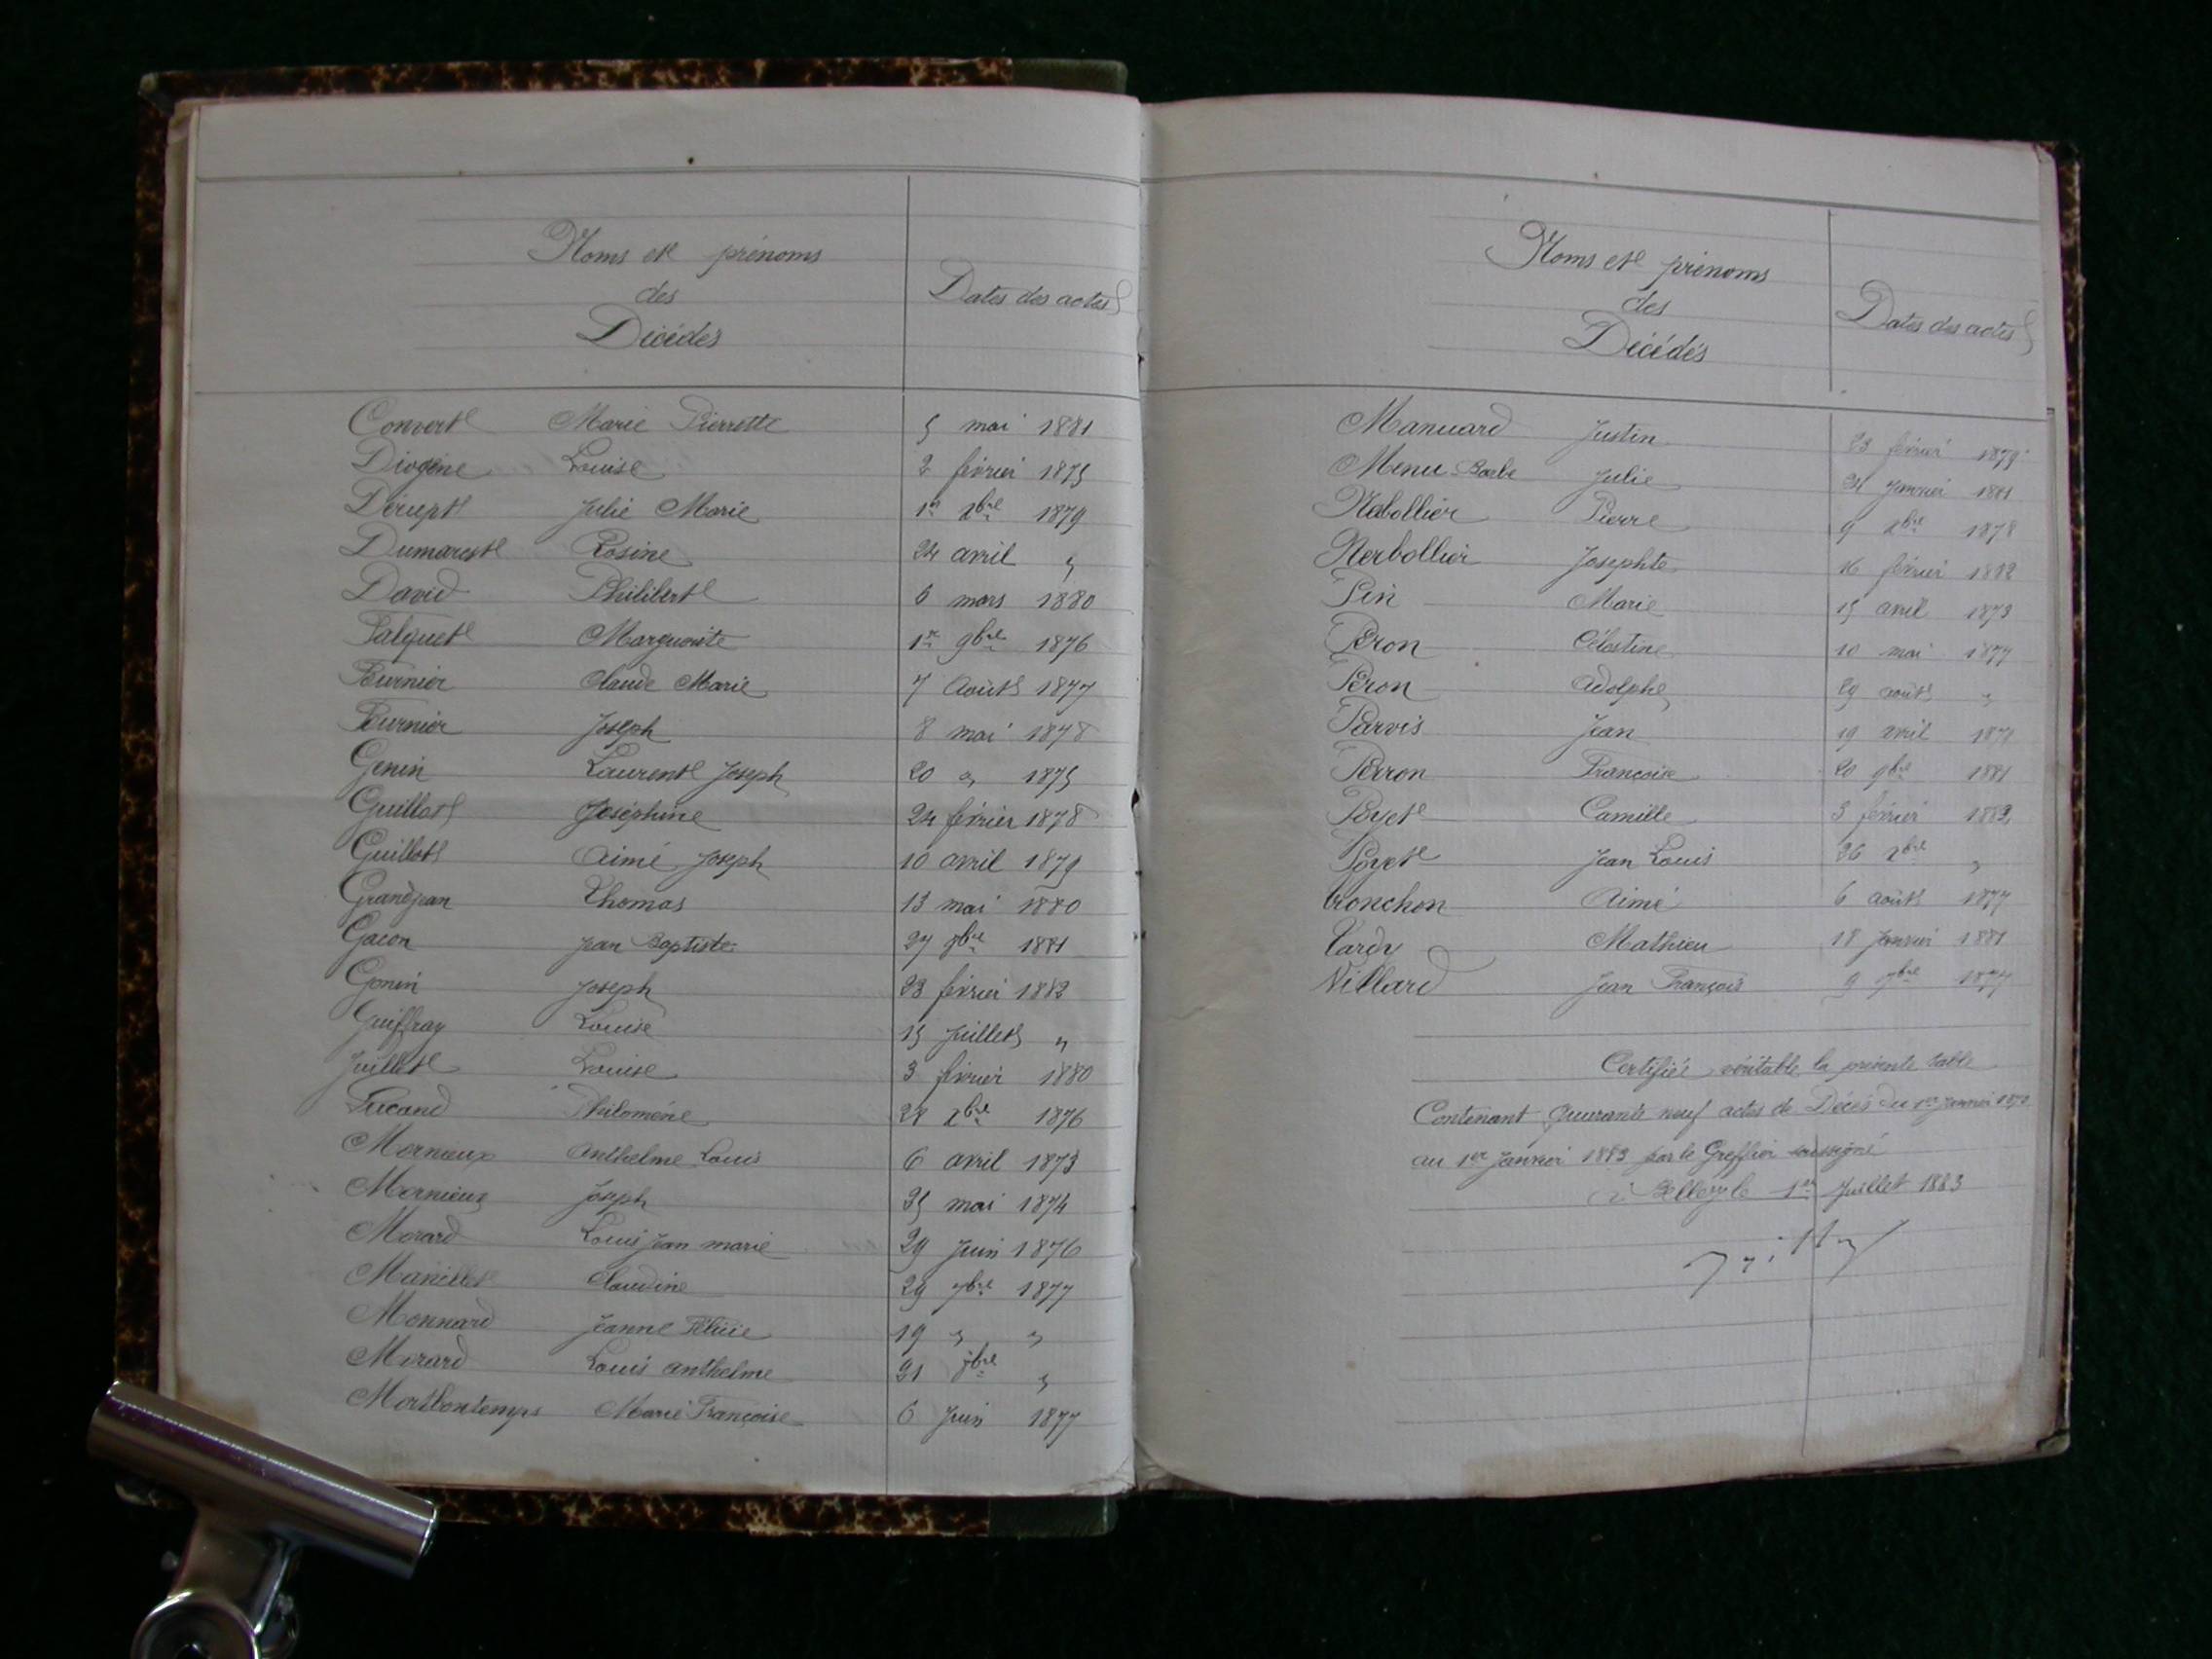 Noms et prénoms
des
Décédés
Dates des actes
Convert Marie Pierrette 5 mai 1881
Diogène Louise 2 février 1875
Dérupt Julie Marie 1er xbre 1879
Dumarest Rosine 24 avril "
David Philibert 6 mars 1880
Falquet Marguerite 1er 9bre 1876
Fournier Claude Marie 7 Août 1877
Fournier Joseph 8 mai 1878
Genin Laurent Joseph 20 " 1875
Guillot Joséphine 24 février 1878
Guillot Aimé Joseph 10 avril 1879
Grandjean Thomas 13 mai 1880
Gacon Jean Baptiste 27 1881
Gonin Joseph 23 février 1882
Guiffray Louise 15 Juillet "
Juillet Louise 3 février 1880
Philomène xbre 1876
Mornieux Anthelme Louis 6 avril 1873
Mornieux Joseph 25 mai 1874
Morard Louis Jean marie 29 Juin 1876
Claudine 29 7bre 1877
Monnard Jeanne 19 " "
Morard Louis anthelme 21 "
Mortbontemps Marie Françoise 6 Juin 1877
Noms et prénoms
des
Décédés
Dates des actes
Manuard Justin 23 février 1879
Menu Barbe Julie 24 Janvier 1881
Nabollier Pierre 9 xbre 1878
Nerbollier Josephte 16 février 1882
Pin Marie 15 avril 1873
Péron Célestine 10 mai 1877
Péron Adolphe 29 août "
Parvis Jean 19 avril
Perron Françoise 20 9bre 1881
Poyet Camille 3 février 1882
Poyet Jean Louis 26 xbre "
Tronchon Aimé 6 août 1877
Tardy Mathieu 18 Janvier 1881
Villard Jean François 9 7bre 1877
Certifiée véritable la présente table
Contenant Quarante neuf actes de Décès du 1er Janvier 1873
au 1er Janvier 1883 par le Greffier soussigné
à Belley le 1er Juillet 1883